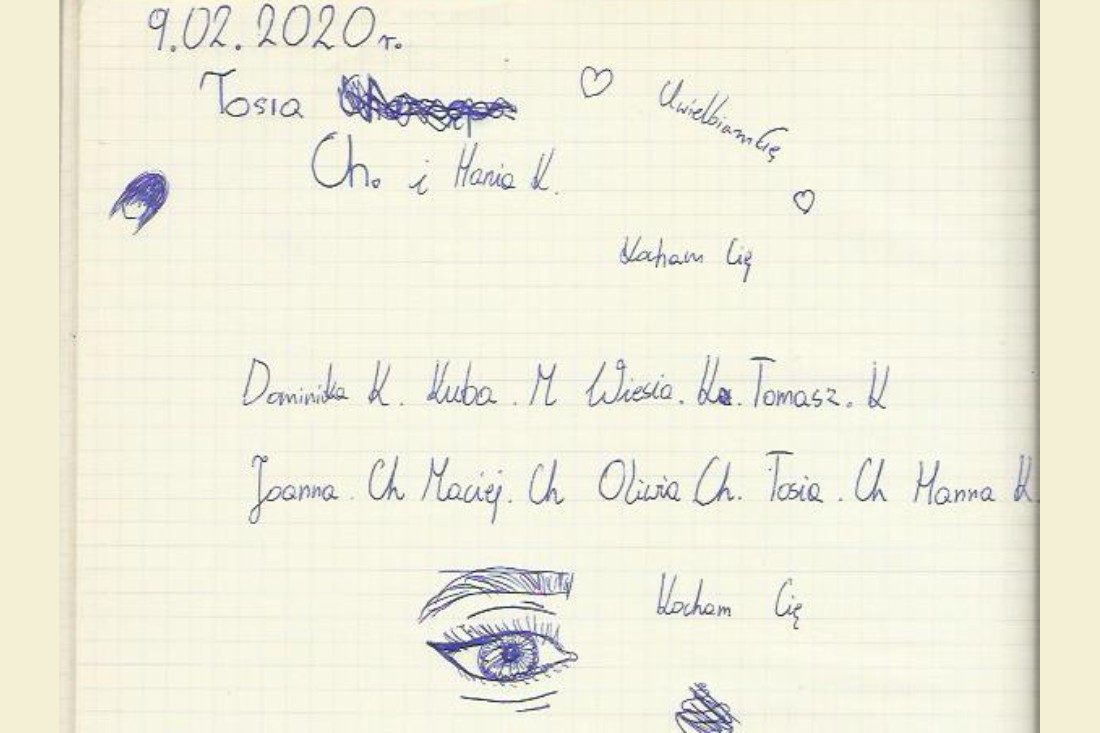 9.02.2020r.
Tosia
Ch. i Hania K.
Uwielbiam Cię
Kocham Cię
Dominika K. Kuba . M Wiesia. K. Tomasz. K
Joanna. Ch Maciej. Ch Oliwia Ch. Tosia . Ch Hanna K.
Kocham Cię